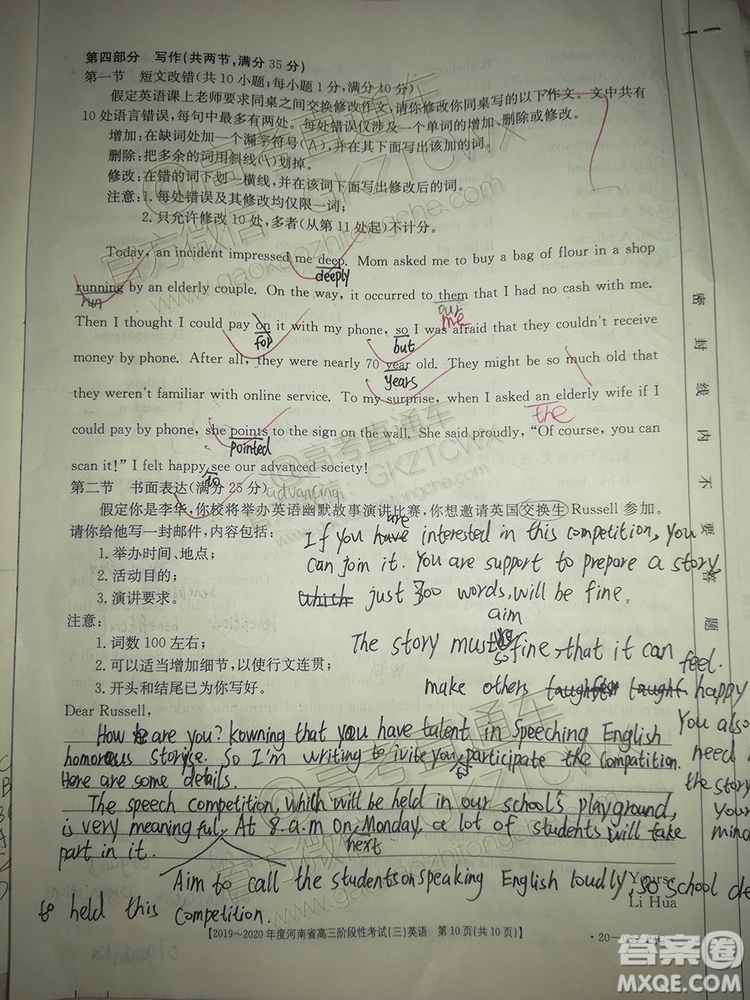 第四部分 写作(共两节,满分 35 分)
第一节 短文改错(共 10 小题;每小题 1 分,满分 10 分)
假定英语课上老师要求同桌之间交换修改作文,请你修改你同桌写的以下作文。文中共有
10 处语言错误,每句中最多有两处。每处错误仅涉及一个单词的增加、删除或修改。
增加:在缺词处加一个漏字符号(∧),并在其下面写出该加的词。
删除:把多余的词用斜线(\)划掉。
修改:在错的词下划一横线,并在该词下面写出修改后的词。
注意:1. 每处错误及其修改均仅限一词;
2. 只允许修改 10 处,多者(从第 11 处起)不计分。
Today, an incident impressed me deep. Mom asked me to buy a bag of flour in a shop
deeply
running by an elderly couple. On the way, it occurred to them that I had no cash with me.
run
our me
Then I thought I could pay on it with my phone, so I was afraid that they couldn't receive
for but
money by phone. After all, they were nearly 70 year old. They might be so much old that
years
they weren't familiar with online service. To my surprise, when I asked an elderly wife if I
the
could pay by phone, she points to the sign on the wall. She said proudly, "Of course, you can
pointed
scan it!" I felt happy see our advanced society!
to
advancing
第二节 书面表达(满分 25 分)
假定你是李华,你校将举办英语幽默故事演讲比赛,你想邀请英国交换生 Russell 参加。
请你给他写一封邮件,内容包括:
1. 举办时间、地点;
2. 活动目的;
3. 演讲要求。
注意:
1. 词数 100 左右;
2. 可以适当增加细节,以使行文连贯;
3. 开头和结尾已为你写好。
are
If you have interested in this competition, you
can join it. You are support to prepare a story
which just 300 words, will be fine.
aim
The story must so fine, that it can feel.
make others happy
You also
need
the story
your
mind
Dear Russell,
How are you? kowning that you have talent in Speeching English
homorous storise. So I'm writing to ivite you to participate the compatition.
Here are some details.
The speech competition, which will be held in our school's playground,
is very meaningful. At 8.a.m on next Monday, a lot of students will take
part in it.
Aim to call the students on speaking English loudly, so school
to held this competition.
Yours,
Li Hua
【2019～2020 年度河南省高三阶段性考试(三)英语 第 10 页(共 10 页)】
20-
密封线内不要答题
官方微信公众号:gaokaozhitongche
www.gaokaozhitongche.com
@高考直通车
GKZTCWX
答案圈
MXQE.COM